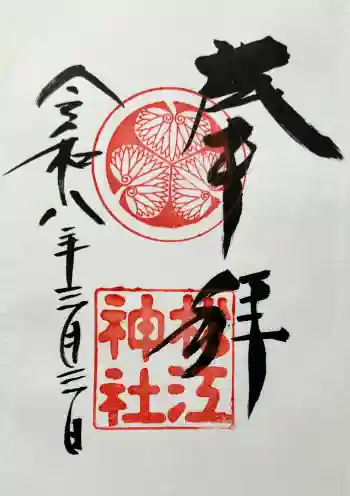 奉拝
松江
神社
令和八年三月三日